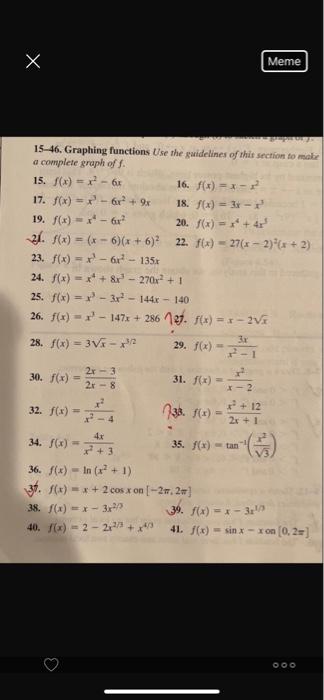 Meme
15–46. Graphing functions Use the guidelines of this section to make
a complete graph of f.
15. f(x) = x² − 6x 16. f(x) = x − x²
17. f(x) = x³ − 6x² + 9x 18. f(x) = 3x − x³
19. f(x) = x⁴ − 6x² 20. f(x) = x⁴ + 4x³
21. f(x) = (x − 6)(x + 6)² 22. f(x) = 27(x − 2)²(x + 2)
23. f(x) = x³ − 6x² − 135x
24. f(x) = x⁴ + 8x³ − 270x² + 1
25. f(x) = x³ − 3x² − 144x − 140
26. f(x) = x³ − 147x + 286 ?27. f(x) = x − 2√x
28. f(x) = 3√x − x^{3/2} 29. f(x) = 3x/(x² − 1)
30. f(x) = (2x − 3)/(2x − 8) 31. f(x) = x²/(x − 2)
32. f(x) = x²/(x² − 4) ?33. f(x) = (x² + 12)/(2x + 1)
34. f(x) = 4x/(x² + 3) 35. f(x) = tan⁻¹(x²/√3)
36. f(x) = ln (x² + 1)
37. f(x) = x + 2 cos x on [−2π, 2π]
38. f(x) = x − 3x^{2/3} 39. f(x) = x − 3x^{1/3}
40. f(x) = 2 − 2x^{2/3} + x^{4/3} 41. f(x) = sin x − x on [0, 2π]